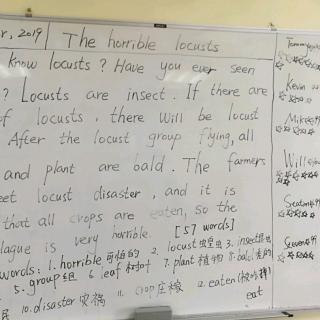 r, 2019 The horrible locusts
Know locusts? Have you ever seen
? Locusts are insect. If there are
of locusts, there will be locust
After the locust group flying, all
and plant are bald. The farmers
eet locust disaster, and it is
that all crops are eaten, so the
lague is very horrible. [57 words]
words: 1. horrible 可怕的 2. locust 蝗虫 3. insect
5. group 组 6. leaf 树叶 7. plant 植物 8. bald
民 10. disaster 灾祸 11. crop 庄稼 12. eaten
eat
Tommy
Kevin
Mike
Will